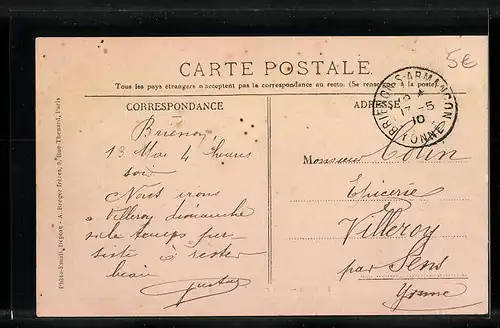 5€
CARTE POSTALE.
Tous les pays étrangers n'acceptent pas la correspondance au recto. (Se renseigner à la poste).
CORRESPONDANCE
ADRESSE
BRIENON-S-ARMANÇON
17 -5
10
YONNE
Brienon,
13 Mai 4 heures
soir
Nous irons
à Villeroy dimanche
si le temps per-
siste à rester
beau
Gustave
Monsieur Colin
Epicerie
Villeroy
par Sens
Yonne
A. Berger frères, 9, Rue Thénard, Paris